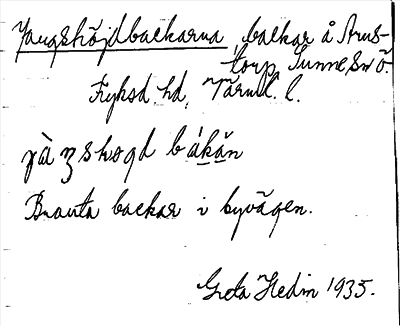 Yaugshöjdbackarna, backar å Arus-
torp Sunne sn ö.
Fryksd. hd, Värml. l.
båkăn
Branta backar i byvägen.
Greta Hedin 1935.